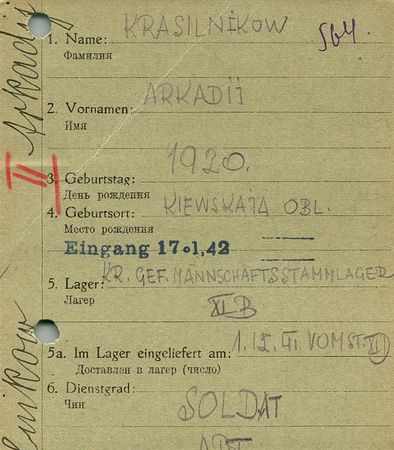 1. Name: KRASILNIKOW 564.
Фамилия
2. Vornamen: ARKADIJ
Имя
3. Geburtstag: 1920.
День рождения
4. Geburtsort: KIEWSKAJA OBL.
Место рождения
Eingang 17.1.42
5. Lager: KR. GEF. MANNSCHAFTSSTAMMLAGER
Лагер
XI B
5a. Im Lager eingeliefert am: 1.12.41. VOM ST.
Доставлен в лагер (число)
6. Dienstgrad: SOLDAT
Чин
Arkadij
II